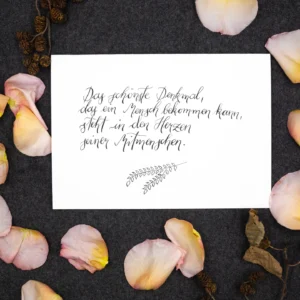 Das schönste Denkmal,
das ein Mensch bekommen kann,
steht in den Herzen
seiner Mitmenschen.